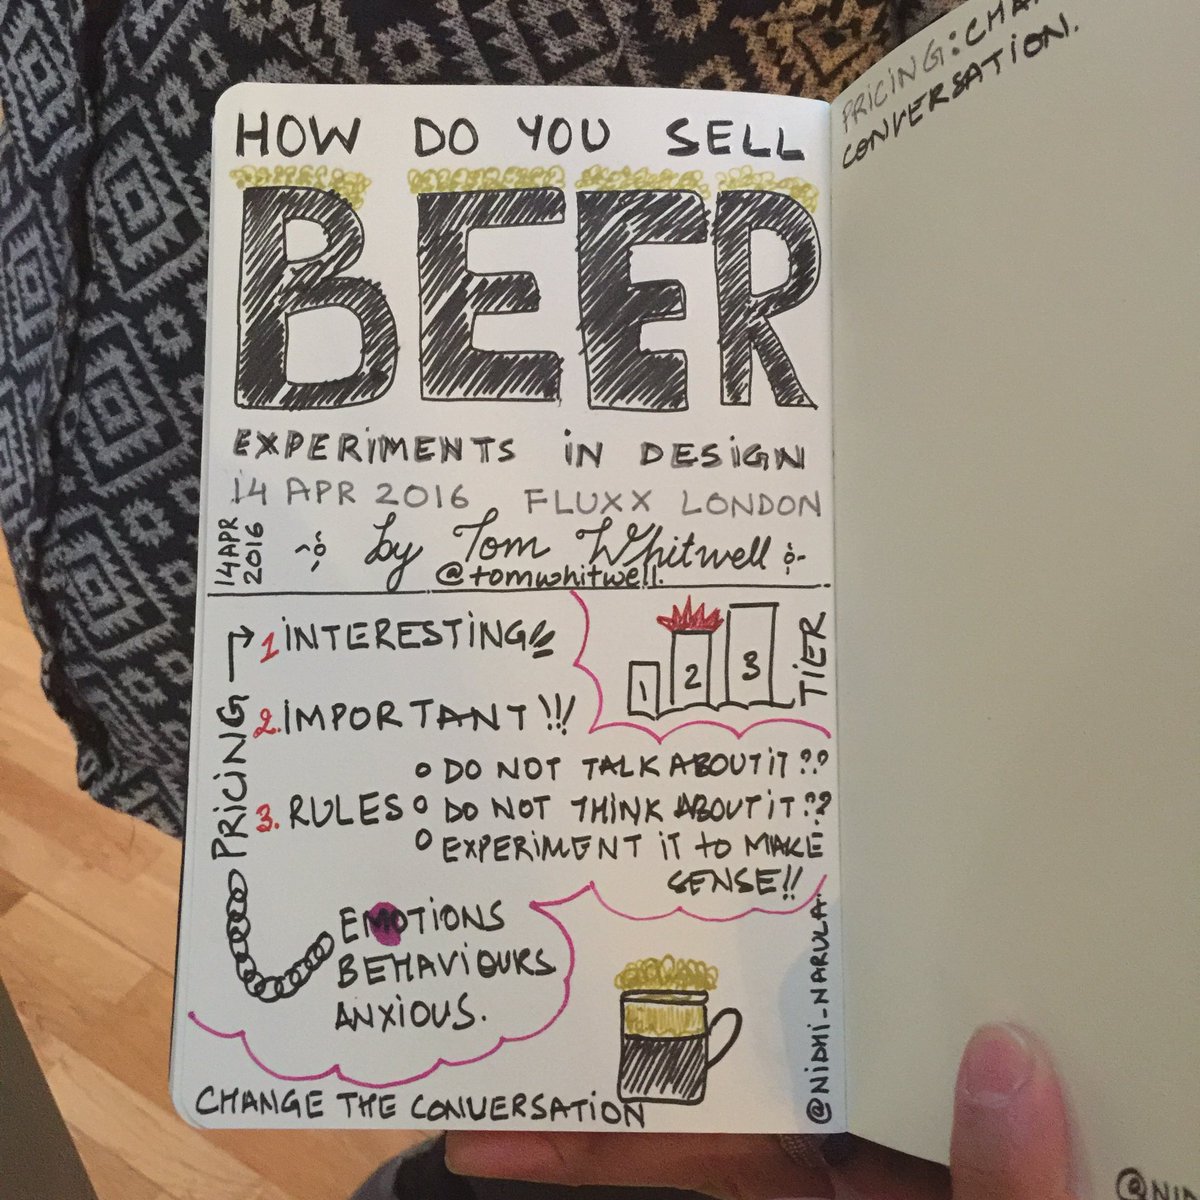 HOW DO YOU SELL
BEER
EXPERIMENTS IN DESIGN
14 APR 2016 FLUXX LONDON
14 APR
2016
by Tom Whitwell
@tomwhitwell.
PRICING
1. INTERESTING!!
2. IMPORTANT!!!
3. RULES
1 2 3
TIER
DO NOT TALK ABOUT IT??
DO NOT THINK ABOUT IT??
EXPERIMENT IT TO MAKE
SENSE!!
EMOTIONS
BEHAVIOURS
ANXIOUS.
CHANGE THE CONVERSATION
@NIDHI_NARULA.
PRICING:
CONVERSATION.